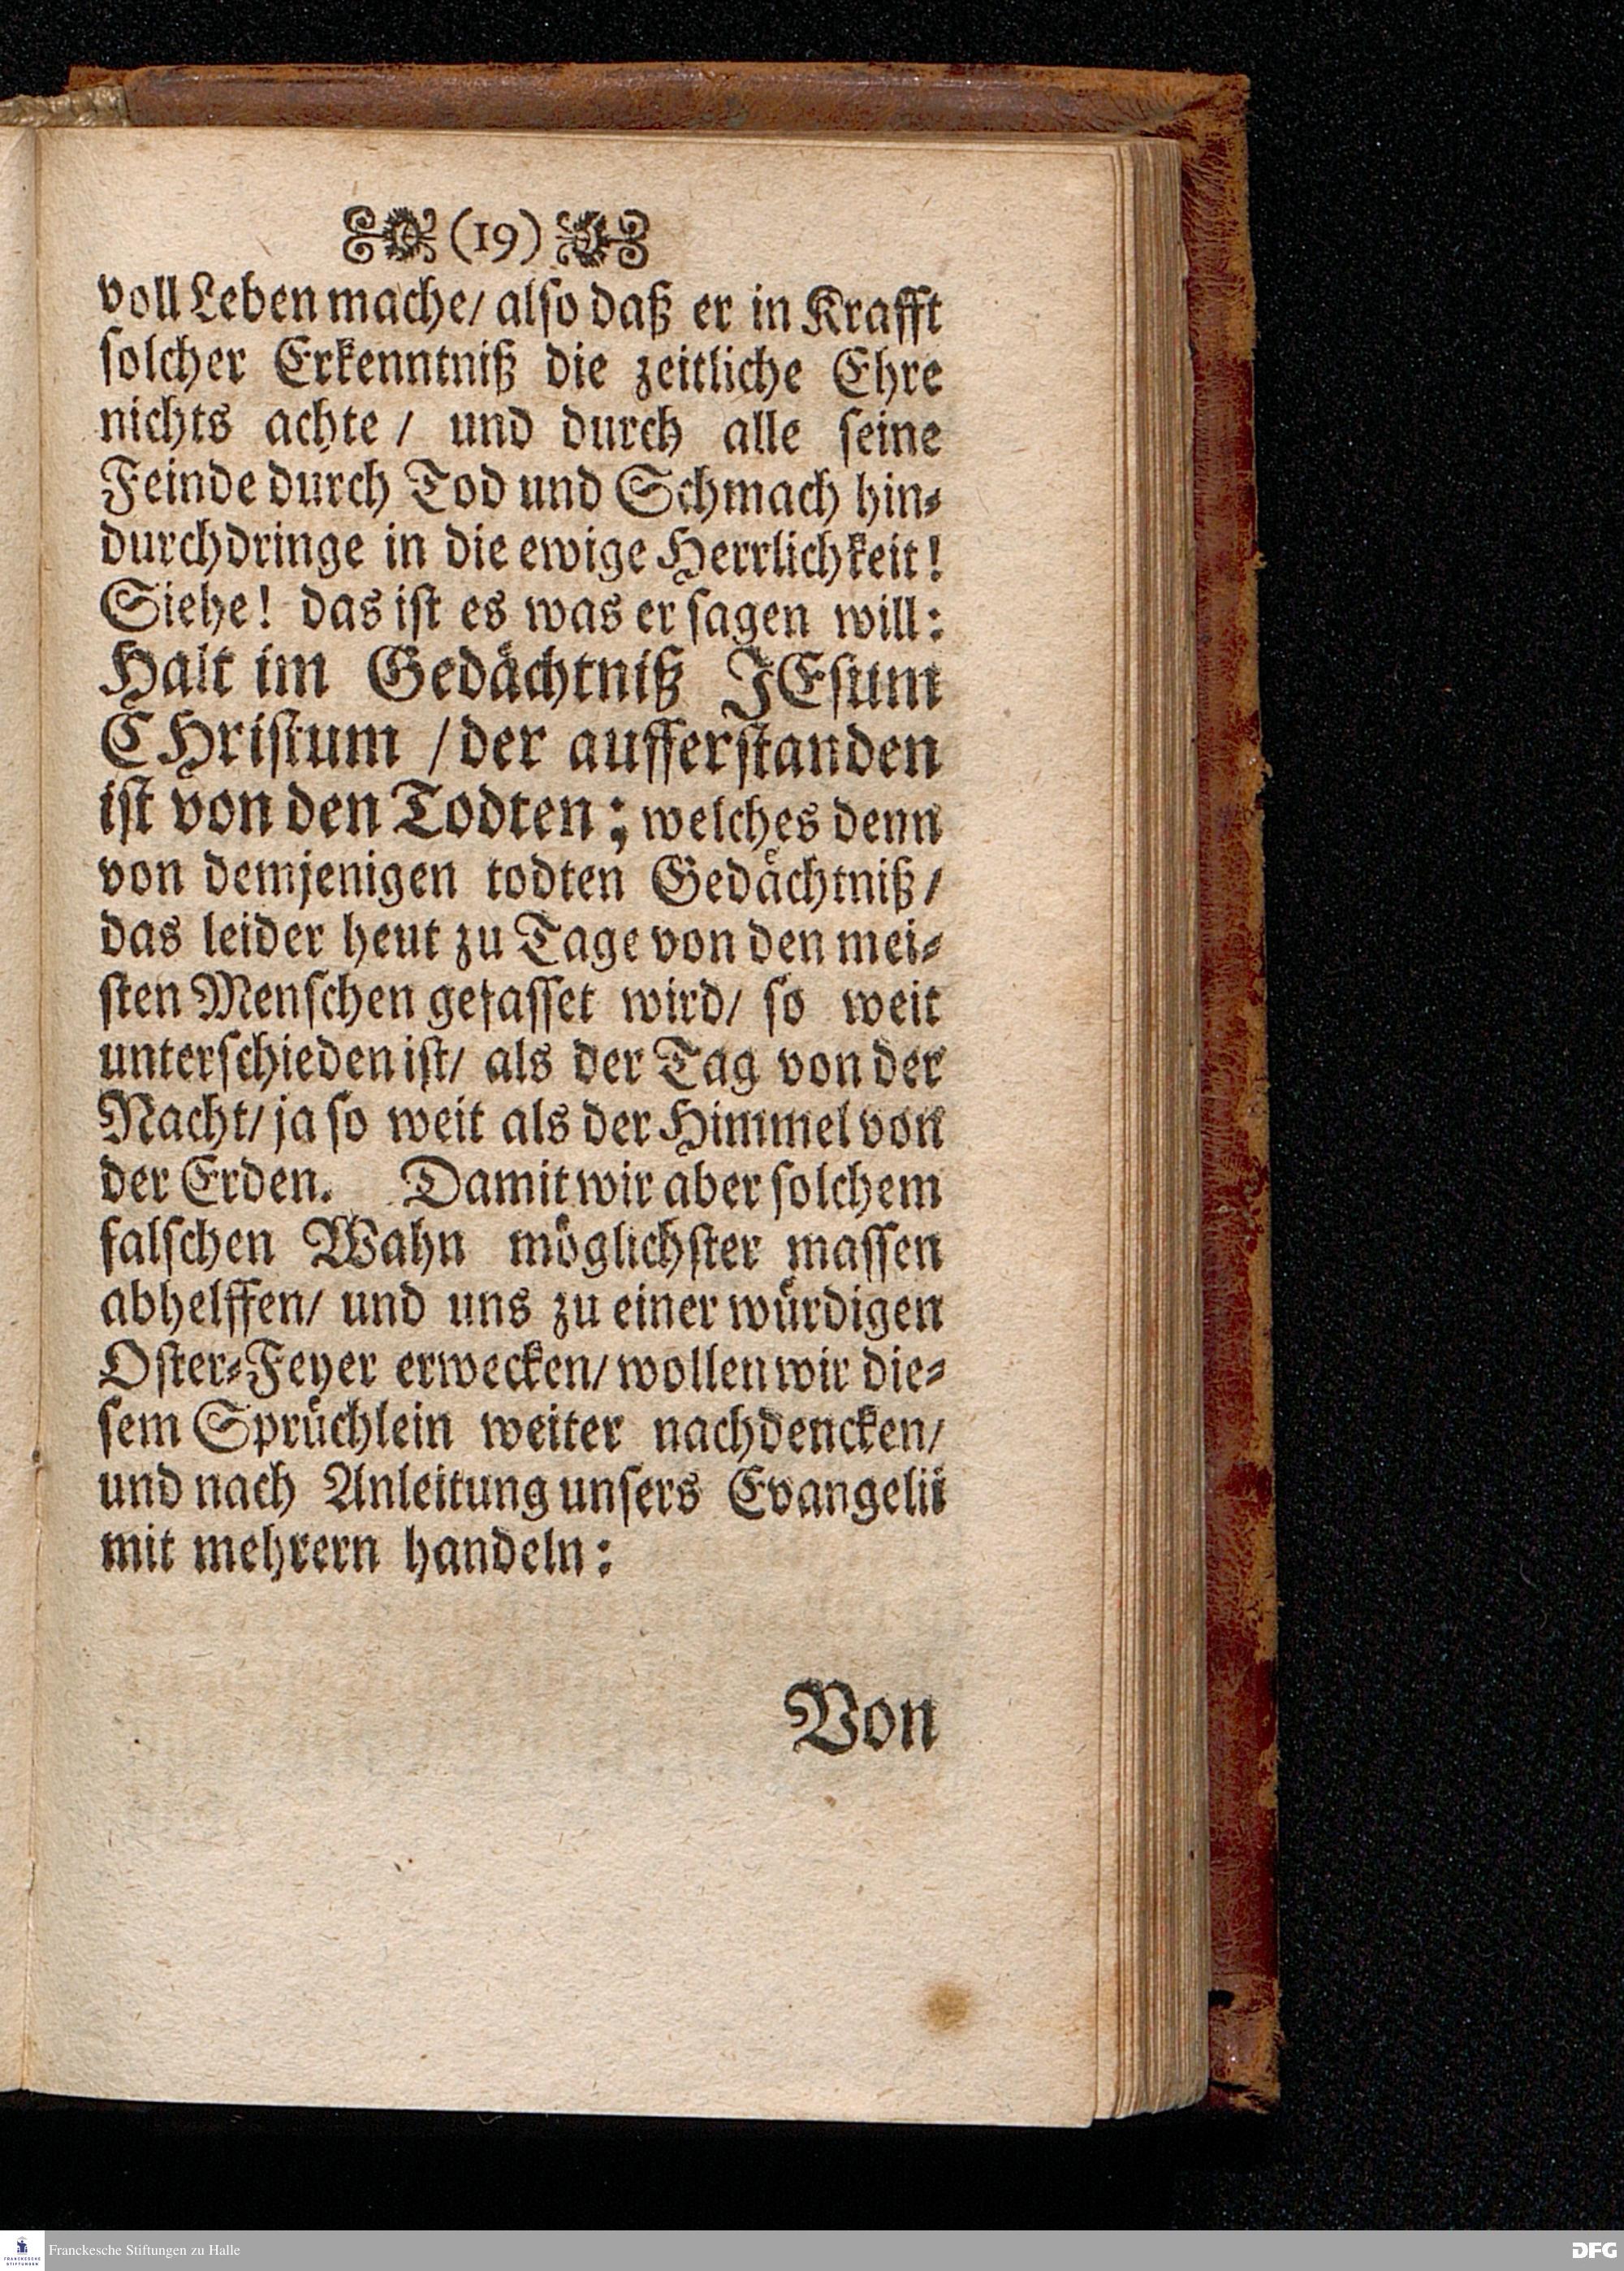 (19)
voll Leben mache/ also daß er in Krafft
solcher Erkenntniß die zeitliche Ehre
nichts achte / und durch alle seine
Feinde durch Tod und Schmach hin-
durchdringe in die ewige Herrlichkeit!
Siehe! das ist es was er sagen will:
Halt im Gedächtniß JEsum
CHristum / der aufferstanden
ist von den Todten; welches denn
von demjenigen todten Gedächtniß/
das leider heut zu Tage von den mei-
sten Menschen gefasset wird/ so weit
unterschieden ist/ als der Tag von der
Nacht/ ja so weit als der Himmel von
der Erden. Damit wir aber solchem
falschen Wahn möglichster massen
abhelffen/ und uns zu einer würdigen
Oster-Feyer erwecken/ wollen wir die-
sem Sprüchlein weiter nachdencken/
und nach Anleitung unsers Evangelii
mit mehrern handeln:
Von
FRANCKESCHE
STIFTUNGEN
Franckesche Stiftungen zu Halle
DFG